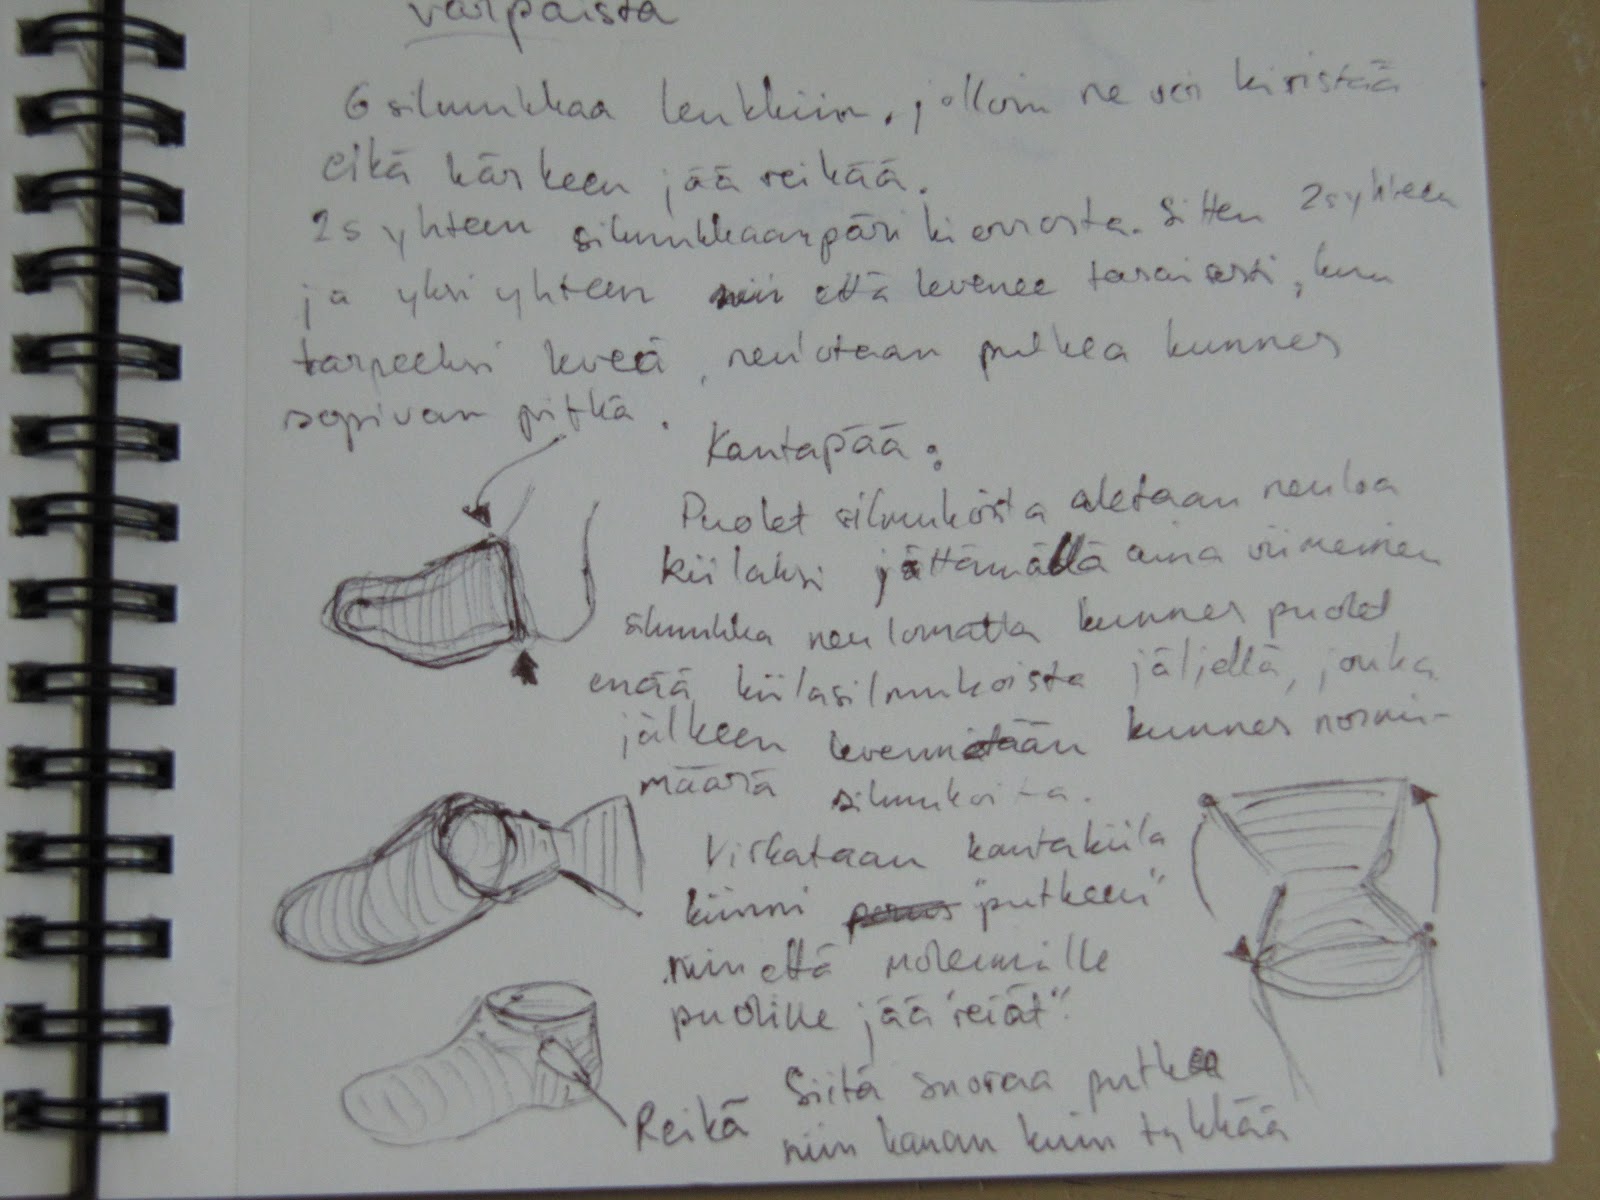 varpaista
6 silmukkaa lenkkiin, jolloin ne voi kiristää
eikä kärkeen jää reikää.
2s yhteen silmukkaanpäri kierrosta. Sitten 2s yhteen
ja yksi yhteen niin että levenee tasaisesti, kun
tarpeeksi leveä, neulotaan putkea kunnes
sopivan pitkä.
Kantapää:
Puolet silmukoista aletaan neuloa
kiilaksi jättämällä aina viimeinen
silmukka neulomatta kunnes puolet
enää kiilasilmukoista jäljellä, jonka
jälkeen levennetään kunnes normi-
määrä silmukoita.
Virkataan kantakiila
kiinni "putkeen"
niin että molemmille
puolille jää "reiät".
Siitä suoraa putkea
niin kauan kuin tykkää
Reikä